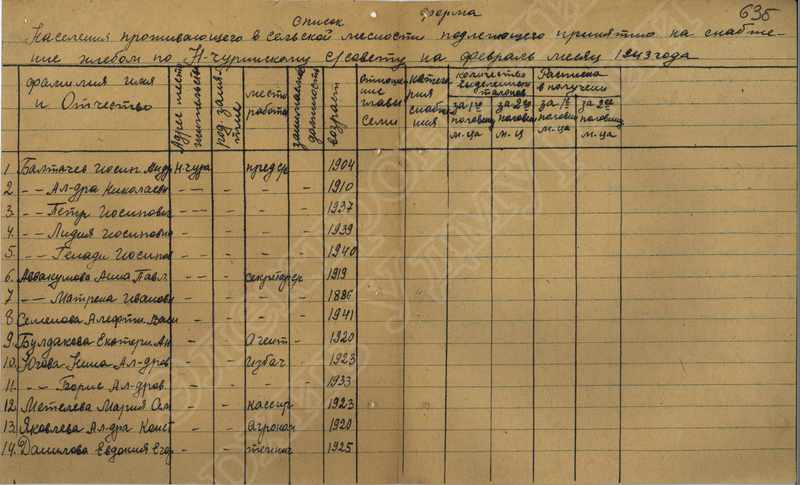 635
Список форма
Населения проживающего в сельской месности подлежащего принятию на снабже-
ние хлебом по Н-чуринскому с/совету на февраль месяц 1943 года
фамилия имя и Отчество
Адрес место жительства
род занятие
место работы
занимаемая должность
возраст
Отношение главы семи
категория снабжения
количество выделенного талонов
Расписка в получени
за 1ую половину м-ца
за 2ую половину м-ц
за 1ю половину м-ца
за 2ую половину м-ца
1 Балтачев Иосиф Андр Н-чура - предср - 1904
2 -- Ал-дра Николаевн -- - - - 1910
3. -- Петур Иосипович -- - - - 1937
4. -- Лидия Иосиповна - - - - 1939
5. -- Генади Иосипов - - - - 1940
6. Аввакумова Анна Павл. -- - секретарср 1919
7 -- Матрена Ивановн -- - - - 1886
8 Семенова Алефтин Васи -- - - - 1941
9. Булдакова Екатери Ан - - Огент - 1920
10. Югова Нина Ал-дров - - Избач - 1923
11. -- Борис Ал-дров. - - - - 1933
12. Метелева Мария Сем - - кассир 1923
13. Яковлева Ал-дра Конст - - Агроном 1920
14. Данилова Евдокия Егор - - технич 1925